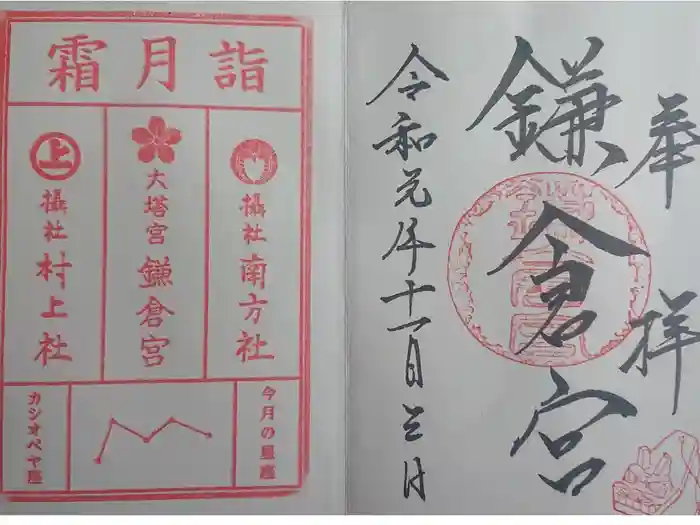 奉拝
鎌倉宮
令和元年十一月三日
詣月霜
摂社 南方社
大塔宮 鎌倉宮
上
摂社 村上社
今月の星座
カシオペヤ座